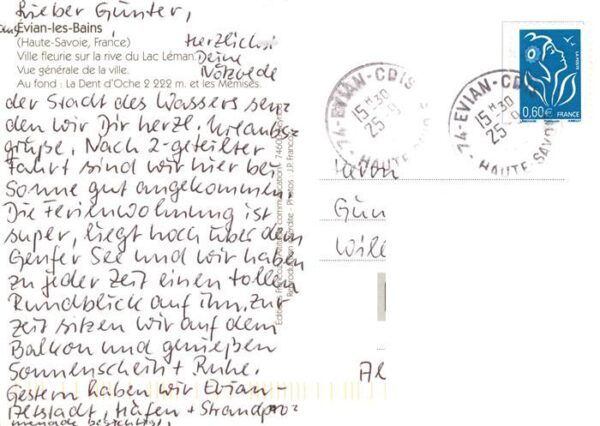 Lieber Günter,
Evian-les-Bains
(Haute-Savoie, France)
Ville fleurie sur la rive du Lac Léman.
Vue générale de la ville.
Au fond : La Dent d'Oche 2 222 m. et les Mémises.
Herzlichst
Deine
der Stadt des Wassers sen
den wir Dir herzl. Urlaubs
grüße. Nach 2-geteilter
Fahrt sind wir hier bei
Sonne gut angekommen.
Die Ferienwohnung ist
super, liegt hoch über dem
Genfer See und wir haben
zu jeder Zeit einen tollen
Rundblick auf ihn. Zur
Zeit sitzen wir auf dem
Balkon und genießen
Sonnenschein + Ruhe.
Gestern haben wir Evian-
Altstadt, Hafen + Strandpro
menade besichtigt,
74-EVIAN-CDIS
15H30
25-9
HAUTE
74-EVIAN-CDIS
15H30
25-9
HAUTE SAVOIE
LA POSTE
0,60€ FRANCE
Gün
Wil